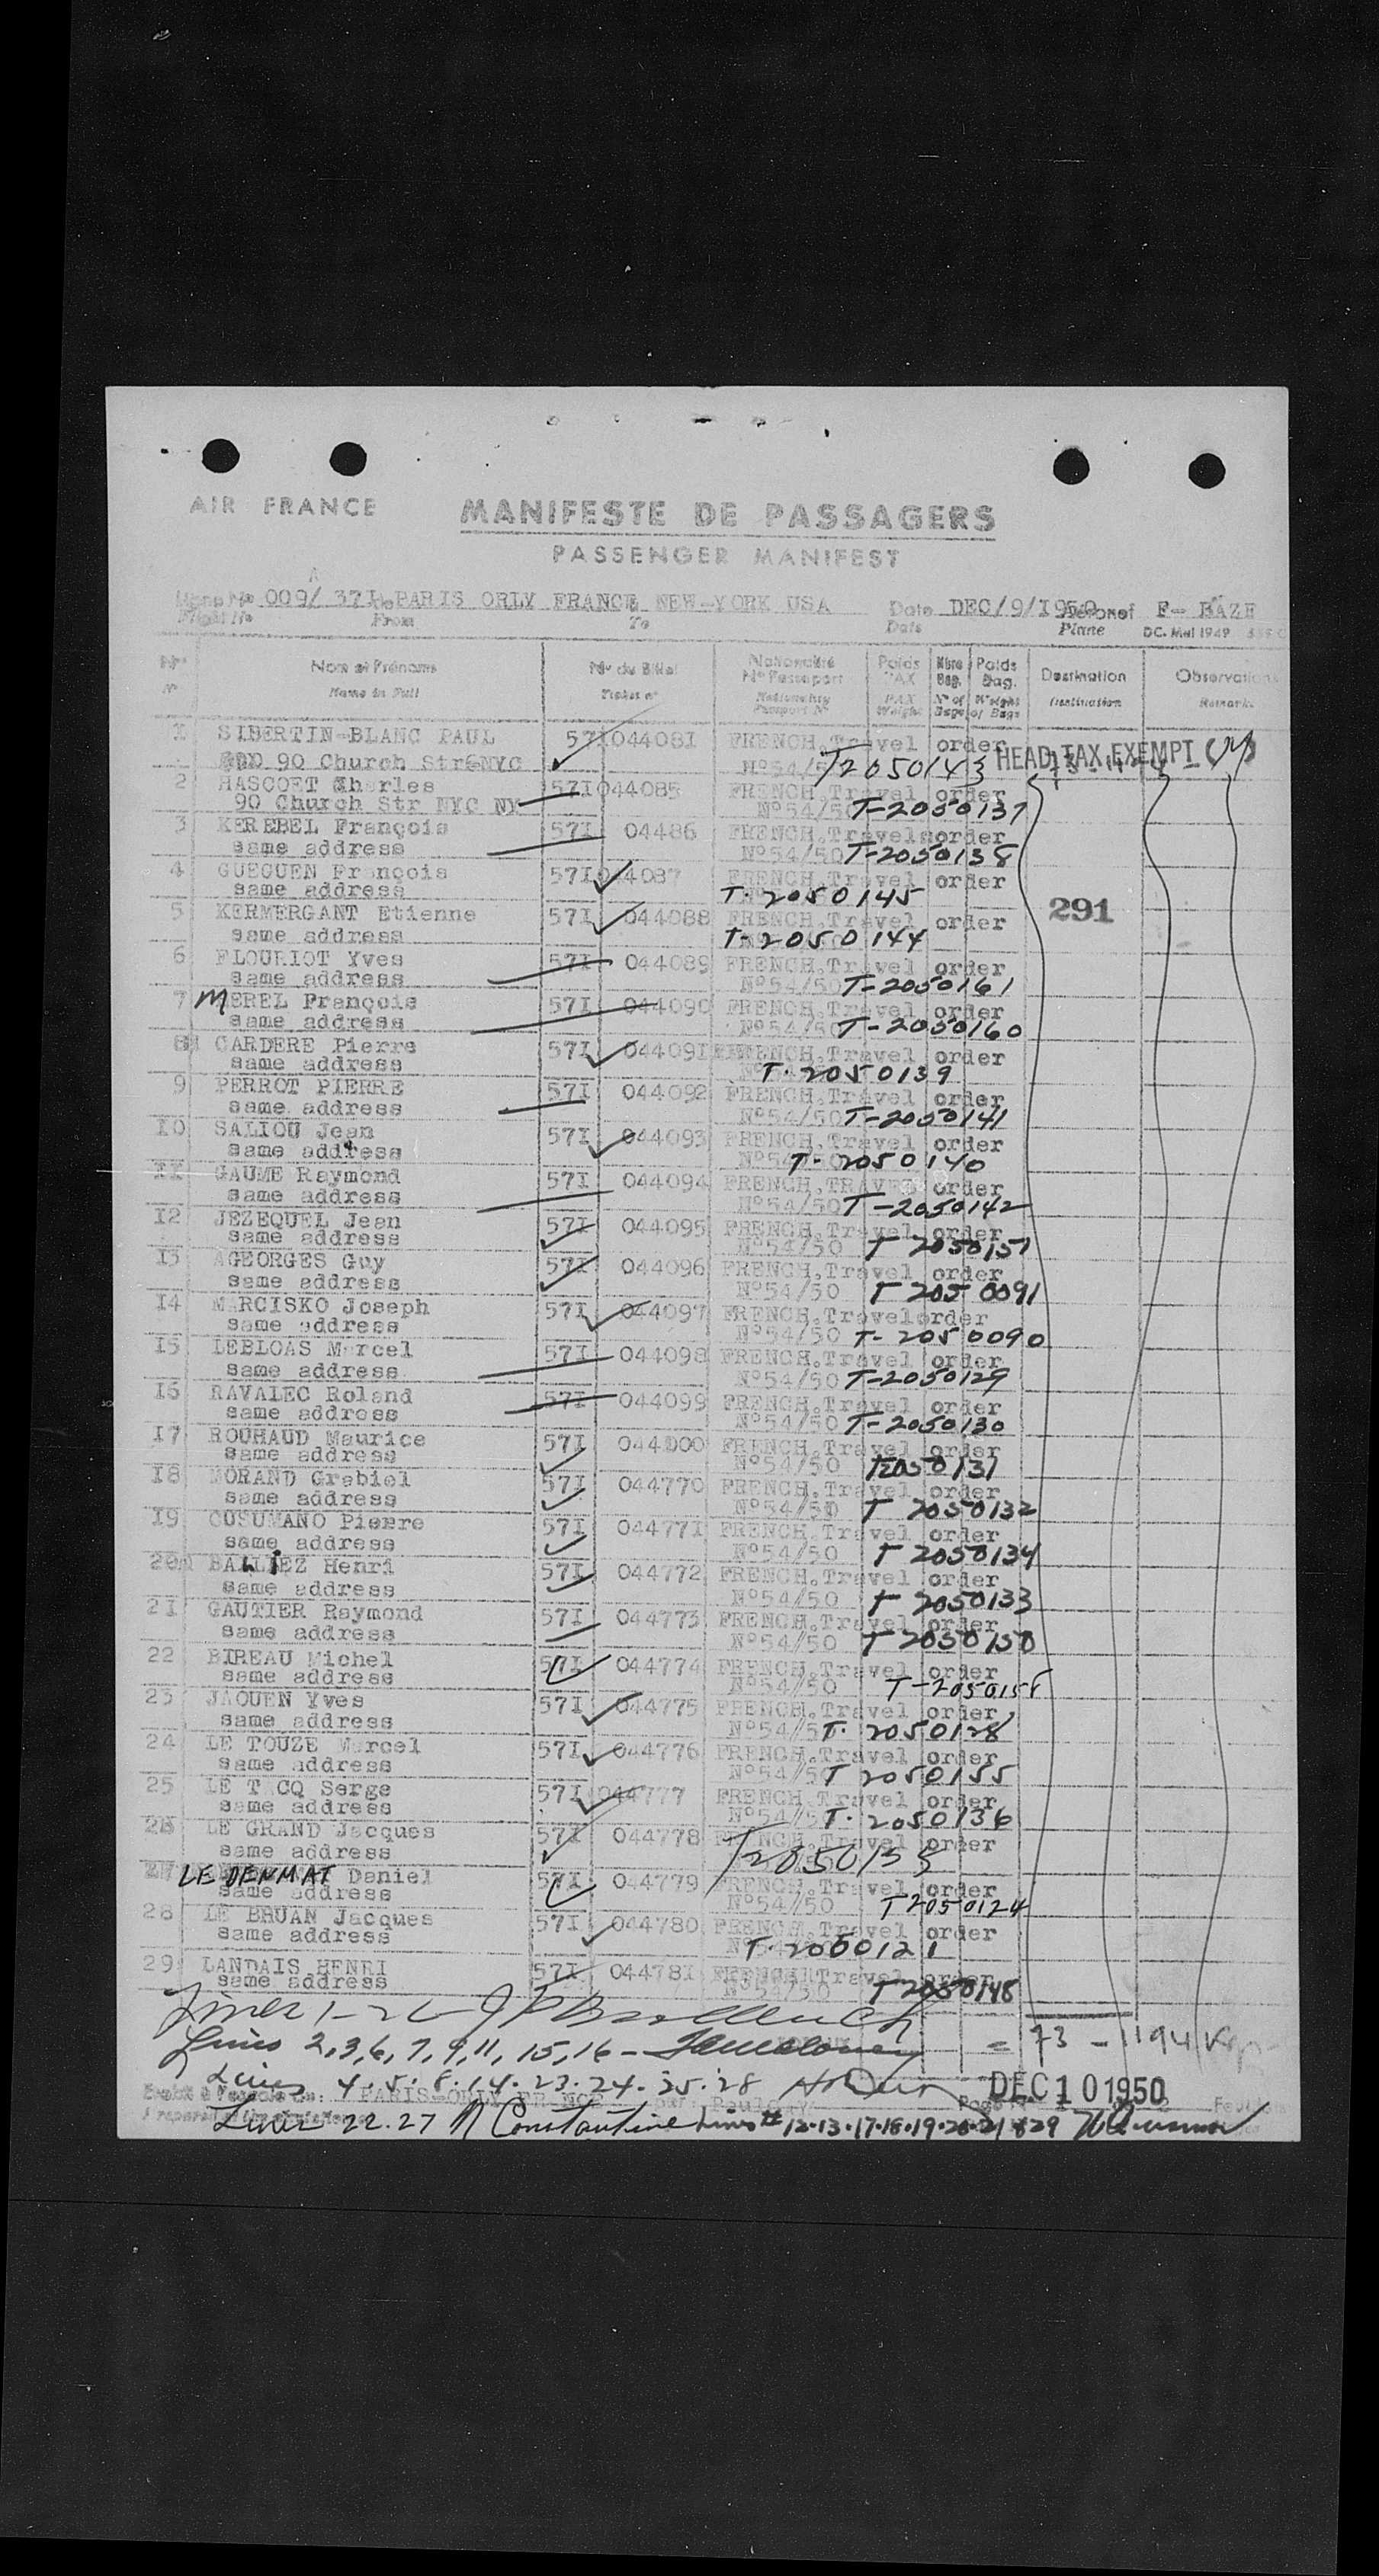 AIR FRANCE
MANIFESTE DE PASSAGERS
PASSENGER MANIFEST
A
009/ 371 PARIS ORLY FRANCE NEW-YORK USA Date DEC/9/I950 F- BAZE
Flight No From To Date Plane DC. Mai 1949
No Nom et Prénoms No du Billet Nationalité No Passeport Poids PAX Nbre Bag. Poids Bag. Destination Observations
No Name in Full Ticket no Nationality Passport No PAX Weight No of Bags Weight of Bags Destination Remarks
I SIBERTIN-BLANC PAUL 57I 04408I FRENCH.Travel order HEAD TAX EXEMPT
90 Church Str NYC No54/5 T2050143
2 HASCOET Charles 57I 044085 FRENCH.Travel order
90 Church Str NYC NY No54/50 T-2050137
3 KEREBEL François 57I 04486 FRENCH.Travel order
same address No54/50 T-2050138
4 GUEGUEN François 57I 044087 FRENCH.Travel order
same address T-2050145
5 KERMERGANT Etienne 57I 044088 FRENCH.Travel order 291
same address T-2050144
6 FLOURIOT Yves 57I 044089 FRENCH.Travel order
same address No54/50 T-2050161
7 MEREL François 57I 044090 FRENCH.Travel order
same address No54/50 T-2050160
8 CARDERE Pierre 57I 04409I FRENCH.Travel order
same address T-2050139
9 PERROT PIERRE 57I 044092 FRENCH.Travel order
same address No54/50 T-2050141
IO SALIOU Jean 57I 044093 FRENCH.Travel order
same address T-2050140
II GAUME Raymond 57I 044094 FRENCH.TRAVEL order
same address No54/50 T-2050142
I2 JEZEQUEL Jean 57I 044095 FRENCH.Travel order
same address No54/50 T 2050157
I3 AGEORGES Guy 57I 044096 FRENCH.Travel order
same address No54/50 T 2050091
I4 MARCISKO Joseph 57I 044097 FRENCH.Travelorder
same address No54/50 T-2050090
I5 LEBLOAS Marcel 57I 044098 FRENCH.Travel order
same address No54/50 T-2050129
I6 RAVALEC Roland 57I 044099 FRENCH.Travel order
same address No54/50 T-2050130
I7 ROUHAUD Maurice 57I FRENCH.Travel order
same address No54/50 T2050131
I8 MORAND Grabiel 57I 044770 FRENCH.Travel order
same address No54/50 T 2050132
I9 CUSUMANO Pierre 57I 04477I FRENCH.Travel order
same address No54/50 T 2050134
20 BALLIEZ Henri 57I 044772 FRENCH.Travel order
same address No54/50 T 2050133
2I GAUTIER Raymond 57I 044773 FRENCH.Travel order
same address No54//50 T 2050150
22 BIREAU Michel 57I 044774 FRENCH.Travel order
same address No54//50 T-2050158
23 JAOUEN Yves 57I 044775 FRENCH.Travel order
same address No54//5 T. 2050128
24 LE TOUZE Marcel 57I 044776 FRENCH.Travel order
same address No54//5 T 2050155
25 LE TACQ Serge 57I 044777 FRENCH.Travel order
same address No54//5 T. 2050136
26 LE GRAND Jacques 57I 044778 FRENCH.Travel order
same address
27 LE DENMAT Daniel 57I 044779 FRENCH.Travel order
same address No54//50 T2050124
28 LE BRUAN Jacques 57I 044780 FRENCH.Travel order
same address T. 2050121
29 LANDAIS HENRI 57I 04478I FRENCH.Travel order
same address No54/50 T2050148
Lines 1-26
Lines 2,3,6,7,9,11,15,16 - = 73 - 1194 Kgs
Lines 4.5.8.14.23.24.25.28 DEC 10 1950
PARIS-ORLY FRANCE
Lines 22.27 N Constantine Lines # 12.13.17.18.19.20.21 & 29